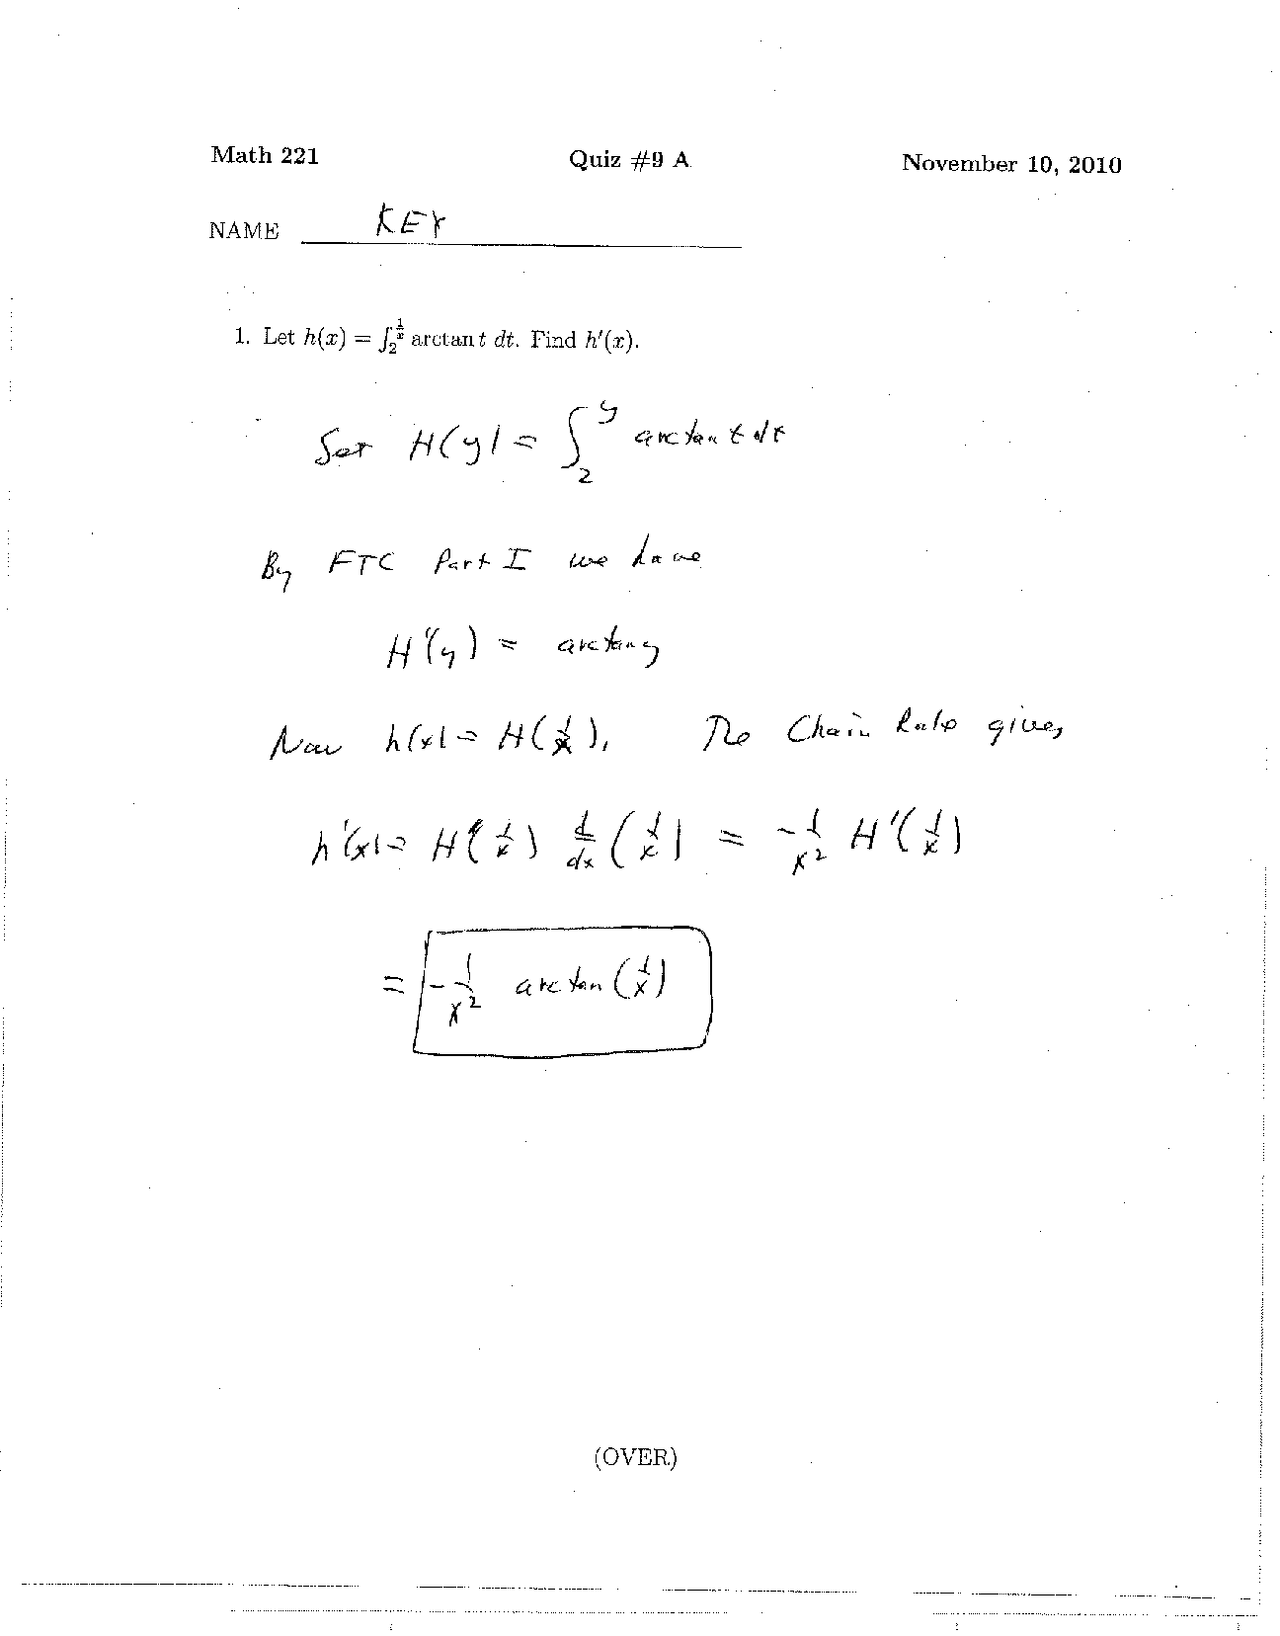 Math 221 Quiz #9 A November 10, 2010
NAME KEY
1. Let h(x) = ∫₂^{1/x} arctan t dt. Find h′(x).
Set H(y) = ∫₂^y arctan t dt
By FTC Part I we have
H′(y) = arctan y
Now h(x) = H(1/x). The Chain Rule gives
h′(x) = H′(1/x) d/dx (1/x) = -1/x² H′(1/x)
= -1/x² arctan(1/x)
(OVER)